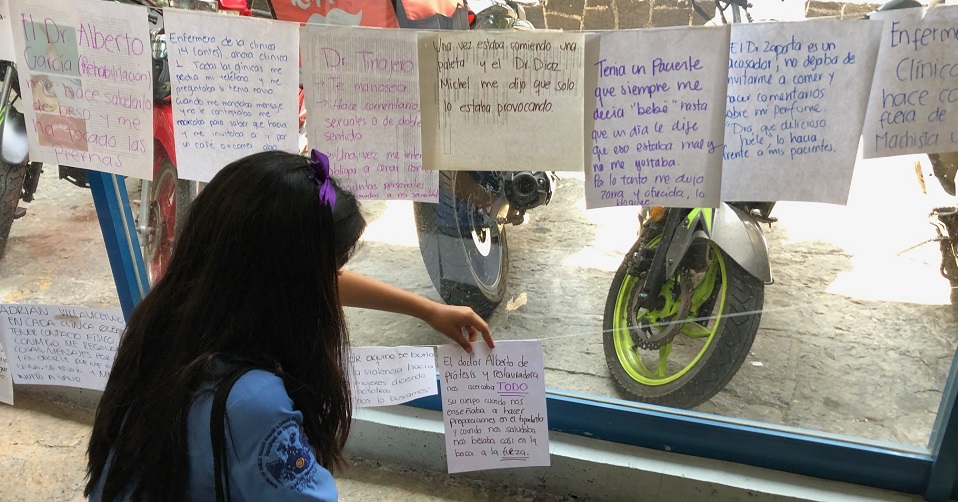 El Dr Alberto
García Rehabilitación
hace saludarlo
de beso y me
ha tocado las
piernas
Enfermero de la clínica
14 (antes) ahora clínica
1. Todas las clínicas me
pedía mi teléfono y me
preguntaba si tenía novio.
Cuando me mandaba mensaje
y no le contestaba me
marcaba para saber que hacía
y me invitaba a ir por
un café o comer algo
Dr. Trinajero
Te manosea
Hace comentarios
sexuales o de doble
sentido
Una vez me
obligó a
preguntas personales
Una vez estaba comiendo una
paleta y el Dr. Diaz
Michel me dijo que solo
lo estaba provocando
Tenía un Paciente
que siempre me
decía "bebé" hasta
que un día le dije
que eso estaba mal y
no me gustaba.
Por lo tanto me dijo
zorra y ofrecida, lo
bloquee.
El Dr. Zapata es un
acosador, no dejaba de
invitarme a comer y
hacer comentarios
sobre mi perfume.
"Dra, que delicioso
huele", lo hacía
frente a mis pacientes.
Enferme
Clínic
hace co
fuera de
Machista
ADRIAN VILLAVICENC
EN CADA CLINICA
TENER CONTACTO FISICO
CONMIGO, ME
se burló
la violencia hacia
mujeres diciendo
nosotras
nos lo buscamos
El doctor Alberto de
Prótesis y restauradora
nos acercaba TODO
su cuerpo cuando nos
enseñaba a hacer
preparaciones en el tipodonto
y cuando nos saludaba
nos besaba casi en la
boca a la fuerza.